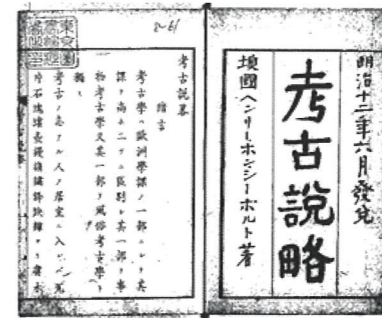 明治十二年六月發兌
考古說略
墺國ヘンリーホンシーボルト著
考古說畧
緒言
考古學ハ歐洲學課ノ一部ニシテ其
課ヲ尚ホ二ツニ區別シ其一部ヲ事
物考古學又其一部ヲ風俗考古學ト
稱ス
考古ノ志アル人ノ居室ニ入レバ瓦
2-61